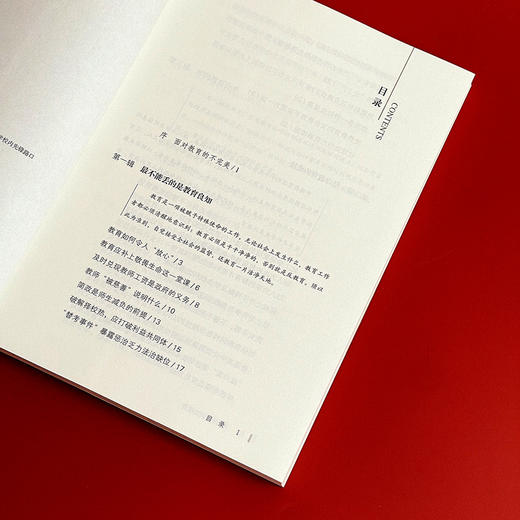 目录
CONTENTS
学校内先锋路口
序 面对教育的不完美 / 1
第一辑 最不能丢的是教育良知
教育是一项被赋予特殊使命的工作，无论社会上发生什么，教育工作
者都必须清醒地意识到：教育必须是干干净净的，否则就是反教育，须以
此为准则，自觉接受全社会的监督，还教育一片洁净天地。
教育如何令人“放心” / 3
教育应补上敬畏生命这一堂课 / 6
及时兑现教师工资是政府的义务 / 8
教师“被慈善”说明什么 / 10
简政是师生减负的前提 / 13
破解择校热，应打破利益共同体 / 15
“替考事件”暴露惩治乏力法治缺位 / 17
目 录 1